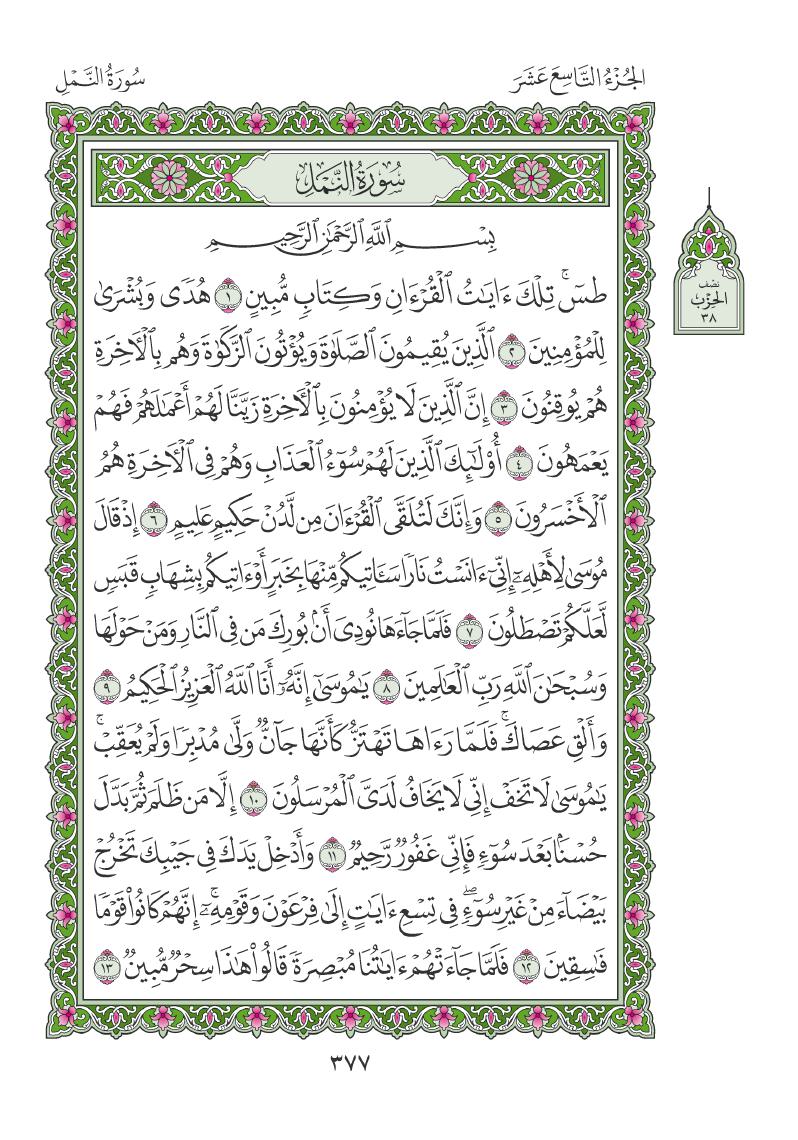 الجُزْءُ التَّاسِعَ عَشَرَ
سُورَةُ النَّمْلِ
سُورَةُ النَّمْلِ
نصف
الحِزْب
٣٨
بِسْمِ ٱللَّهِ ٱلرَّحْمَٰنِ ٱلرَّحِيمِ
طسٓۚ تِلْكَ ءَايَٰتُ ٱلْقُرْءَانِ وَكِتَابٖ مُّبِينٍ ١ هُدٗى وَبُشْرَىٰ
لِلْمُؤْمِنِينَ ٢ ٱلَّذِينَ يُقِيمُونَ ٱلصَّلَوٰةَ وَيُؤْتُونَ ٱلزَّكَوٰةَ وَهُم بِٱلْأٓخِرَةِ
هُمْ يُوقِنُونَ ٣ إِنَّ ٱلَّذِينَ لَا يُؤْمِنُونَ بِٱلْأٓخِرَةِ زَيَّنَّا لَهُمْ أَعْمَٰلَهُمْ فَهُمْ
يَعْمَهُونَ ٤ أُوْلَٰٓئِكَ ٱلَّذِينَ لَهُمْ سُوٓءُ ٱلْعَذَابِ وَهُمْ فِي ٱلْأٓخِرَةِ هُمُ
ٱلْأَخْسَرُونَ ٥ وَإِنَّكَ لَتُلَقَّى ٱلْقُرْءَانَ مِن لَّدُنْ حَكِيمٍ عَلِيمٍ ٦ إِذْ قَالَ
مُوسَىٰ لِأَهْلِهِۦٓ إِنِّيٓ ءَانَسْتُ نَارٗا سَـَٔاتِيكُم مِّنْهَا بِخَبَرٍ أَوْ ءَاتِيكُم بِشِهَابٖ قَبَسٖ
لَّعَلَّكُمْ تَصْطَلُونَ ٧ فَلَمَّا جَآءَهَا نُودِيَ أَنۢ بُورِكَ مَن فِي ٱلنَّارِ وَمَنْ حَوْلَهَا
وَسُبْحَٰنَ ٱللَّهِ رَبِّ ٱلْعَٰلَمِينَ ٨ يَٰمُوسَىٰٓ إِنَّهُۥٓ أَنَا ٱللَّهُ ٱلْعَزِيزُ ٱلْحَكِيمُ ٩
وَأَلْقِ عَصَاكَۚ فَلَمَّا رَءَاهَا تَهْتَزُّ كَأَنَّهَا جَآنّٞ وَلَّىٰ مُدْبِرٗا وَلَمْ يُعَقِّبْۚ
يَٰمُوسَىٰ لَا تَخَفْ إِنِّي لَا يَخَافُ لَدَيَّ ٱلْمُرْسَلُونَ ١٠ إِلَّا مَن ظَلَمَ ثُمَّ بَدَّلَ
حُسْنَۢا بَعْدَ سُوٓءٖ فَإِنِّي غَفُورٞ رَّحِيمٞ ١١ وَأَدْخِلْ يَدَكَ فِي جَيْبِكَ تَخْرُجْ
بَيْضَآءَ مِنْ غَيْرِ سُوٓءٖۖ فِي تِسْعِ ءَايَٰتٍ إِلَىٰ فِرْعَوْنَ وَقَوْمِهِۦٓۚ إِنَّهُمْ كَانُواْ قَوْمٗا
فَٰسِقِينَ ١٢ فَلَمَّا جَآءَتْهُمْ ءَايَٰتُنَا مُبْصِرَةٗ قَالُواْ هَٰذَا سِحْرٞ مُّبِينٞ ١٣
٣٧٧